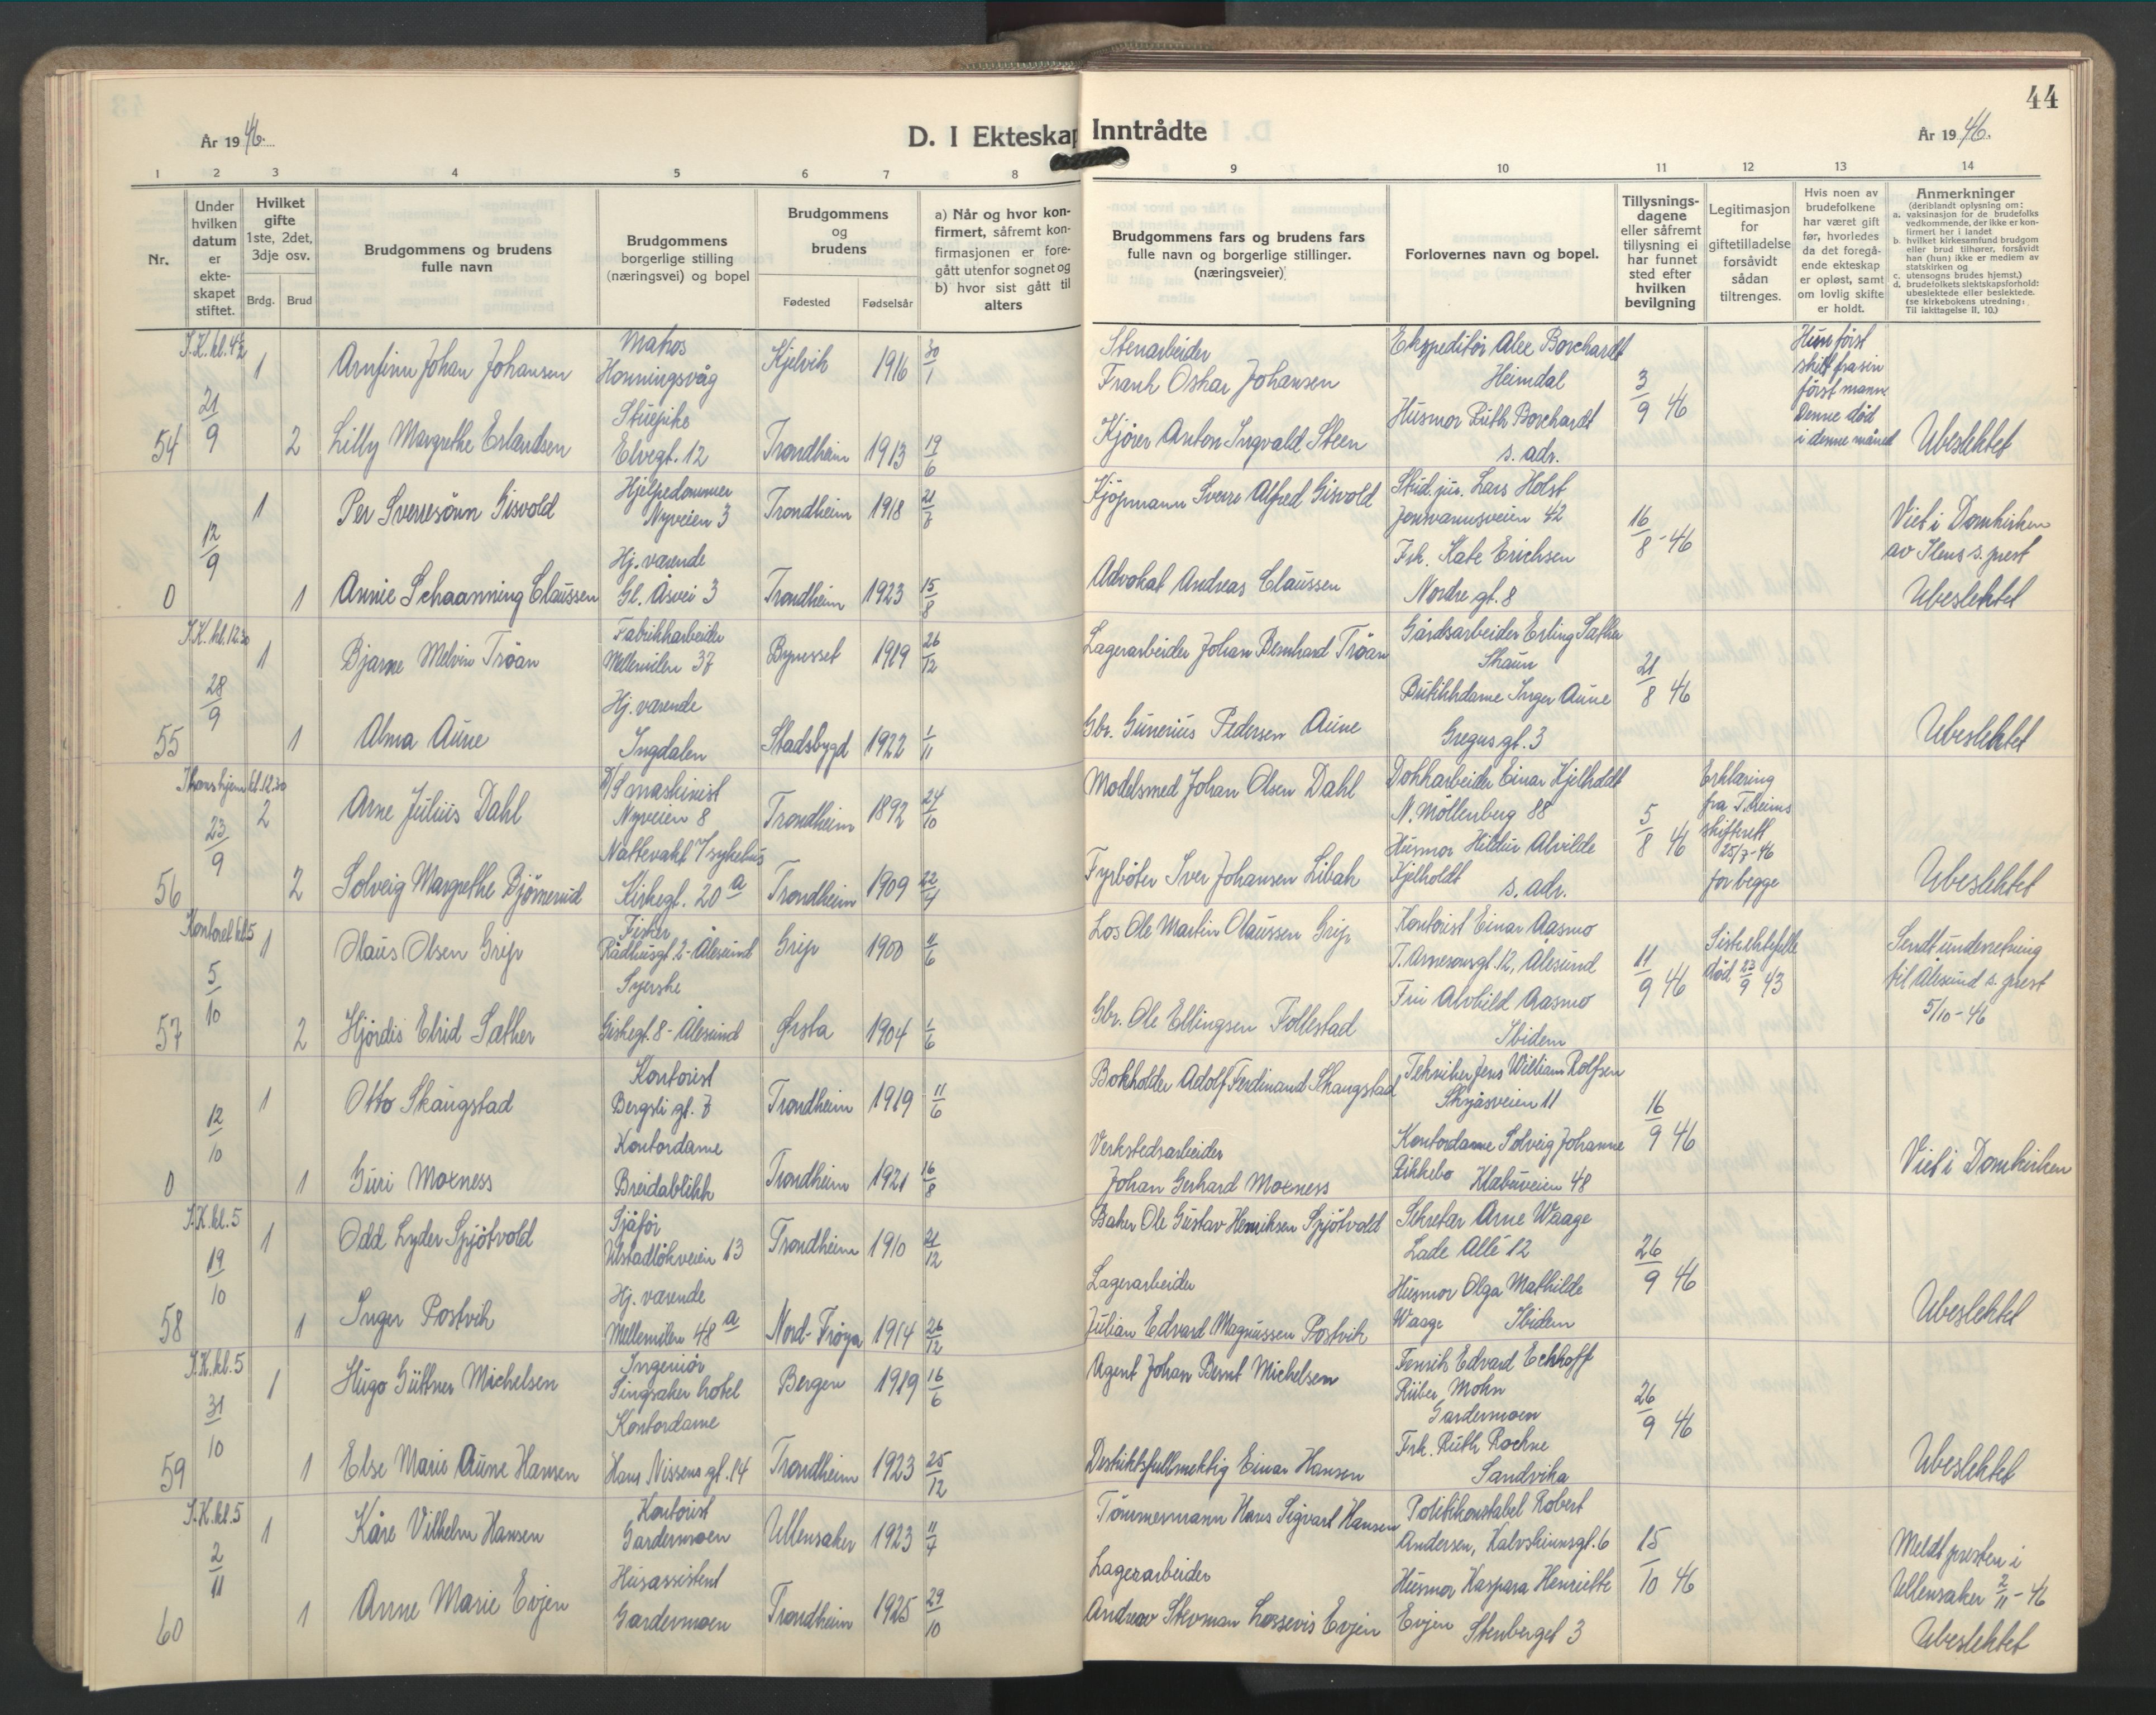 44
År 1946.
D. I Ekteskap
Inntrådte
År 1946.
1 2 3 4 5 6 7 8 9 10 11 12 13 14
Nr.
Under hvilken datum er ekte-skapet stiftet.
Hvilket gifte 1ste, 2det, 3dje osv.
Brdg. Brud
Brudgommens og brudens fulle navn
Brudgommens borgerlige stilling (næringsvei) og bopel
Brudgommens og brudens
Fødested Fødselsår
a) Når og hvor kon-
firmert, såfremt kon-
firmasjonen er fore-
gått utenfor sognet og
b) hvor sist gått til
alters
Brudgommens fars og brudens fars
fulle navn og borgerlige stillinger.
(næringsveier)
Forlovernes navn og bopel.
Tillysnings-
dagene
eller såfremt
tillysning ei
har funnet
sted efter
hvilken
bevilgning
Legitimasjon
for
giftetilladelse
forsåvidt
sådan
tiltrenges.
Hvis noen av
brudefolkene
har været gift
før, hvorledes
da det foregå-
ende ekteskap
er opløst, samt
om lovlig skifte
er holdt.
Anmerkninger
(deriblandt oplysning om:
a. vaksinasjon for de brudefolks
vedkommende, der ikke er kon-
firmert her i landet
b. hvilket kirkesamfund brudgom
eller brud tilhører, forsåvidt
han (hun) ikke er medlem av
statskirken og
c. utensogns brudes hjemst.)
d. brudefolkets slektskapsforhold:
ubeslektede eller beslektede.
(se kirkebokens utredning:
Til iakttagelse II, 10.)
I.K. kl. 4½ 1 Arnfinn Johan Johansen Matros Honningsvåg Kjelvik 1916 30/1
Stenarbeider Frank Oskar Johansen
Ekspeditør Alex Borchardt Heimdal
3/9 46
Hun først
skilt fra sin
først mann
Denne død
i denne måned
54 21/9 2 Lilly Margrethe Erlandsen Stuepike Elvegt. 12 Trondheim 1913 19/6
Kjører Anton Ingvald Steen
Husmor Ruth Borchardt s. adr.
Ubeslektet
1 Per Sverresønn Gisvold Hjelpedommer Nyveien 3 Trondheim 1918 21/7
Kjøpmann Sverre Alfred Gisvold
Stud. jur. Lars Holst Jonsvannsveien 42
16/8-46
Viet i Domkirken
av Ilens s. prest
12/9
0 1 Annie Schaanning Claussen Hj. værende Gl. Åsvei 3 Trondheim 1923 15/8
Advokat Andreas Claussen
Frk. Kate Erichsen Nordre gt. 8
Ubeslektet
I.K. kl. 12.30 1 Bjarne Melvin Trøan Fabrikkarbeider Mellemilen 37 Bynesset 1919 26/12
Lagerarbeider Johan Bernhard Trøan
Gårdsarbeider Erling Sæther Skaun
21/8 46
28/9
55 1 Alma Aune Hj. værende Ingdalen Stadsbygd 1922 1/11
Gbr. Gunerius Pedersen Aune
Butikkdame Inger Aune Gregusgt. 3
Ubeslektet
kl. 12.30 2 Arne Julius Dahl D/S maskinist Nyveien 8 Trondheim 1892 24/10
Modelsmed Johan Olsen Dahl
Dokkarbeider Einar Kjelholdt N. Møllenberg 88
5/8 46
Erklæring
fra T.heims
skifterett
25/7-46
for begge
23/9
56 2 Solveig Margrethe Bjørnerud Nattevakt T/sykehus Kirkegt. 20 a Trondheim 1909 22/4
Fyrbøter Iver Johansen Libak
Husmor Hildur Alvilde Kjelholdt s. adr.
Ubeslektet
Kontoret kl. 5 1 Olaus Olsen Grip Fisker Rådhusgt. 2 - Ålesund Grip 1900 11/6
Los Ole Martin Olaussen Grip
Kontorist Einar Aasmo T. Arnesonsgt. 12, Ålesund
11/9 46
Siste ektefelle
død 23/9 43
Sendt underretning
til Ålesund s. prest
5/10-46
5/10
57 2 Hjørdis Elrid Sæther Syerske Giskegt. 8 - Ålesund Ørsta 1904 1/6
Gbr. Ole Ellingsen Follestad
Fru Alvhild Aasmo Ibidem
1 Otto Skaugstad Kontorist Bergsli gt. 7 Trondheim 1919 11/6
Bokholder Adolf Ferdinand Skaugstad
Tekniker Jens William Rolfsen Skyåsveien 11
16/9 46
12/10
0 1 Guri Moxness Kontordame Breidablikk Trondheim 1921 16/8
Verkstedsarbeider Johan Gerhard Moxness
Kontordame Solveig Johanne Rikkebo Klæbuveien 48
Viet i Domkirken
I.K. kl. 5 1 Odd Lyder Spjøtvold Sjåfør Ulstadløkveien 13 Trondheim 1910 21/12
Baker Ole Gustav Henriksen Spjøtvold
Sekretær Arne Waage Lade Allé 12
26/9 46
19/10
58 1 Inger Postvik Hj. værende Mellemilen 48 a Nord-Frøya 1914 26/12
Lagerarbeider Julian Edvard Magnussen Postvik
Husmor Olga Mathilde Waage Ibidem
Ubeslektet
I.K. kl. 5 1 Hugo Güttner Michelsen Ingeniør Singsaker hotel Bergen 1919 16/6
Agent Johan Bernt Michelsen
Fenrik Edvard Eckhoff Rüber Mohn Gardermoen
26/9 46
31/10
59 1 Else Marie Aune Hansen Kontordame Hans Nissens gt. 14 Trondheim 1923 25/12
Distriktsfullmektig Einar Hansen
Frk. Ruth Rochne Sandvika
Ubeslektet
I.K. kl. 5 1 Kåre Vilhelm Hansen Kontorist Gardermoen Ullensaker 1923 11/7
Tømmermann Hans Sigvart Hansen
Politikonstabel Robert Andersen, Kalvskinnsgt. 6
15/10 46
Meldt presten i
Ullensaker 2/11-46
2/11
60 1 Anne Marie Evjen Husassistent Gardermoen Trondheim 1925 29/10
Lagerarbeider Andreas Evjen
Husmor Kaspara Henriette Evjen Stenberget 3
Ubeslektet